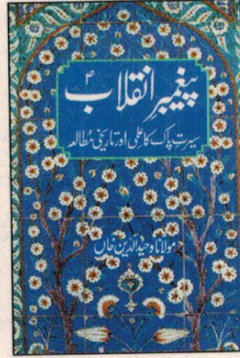 پیغمبر انقلاب
سیرت پاک کا علمی اور تاریخی مطالعہ
مولانا وحید الدین خاں